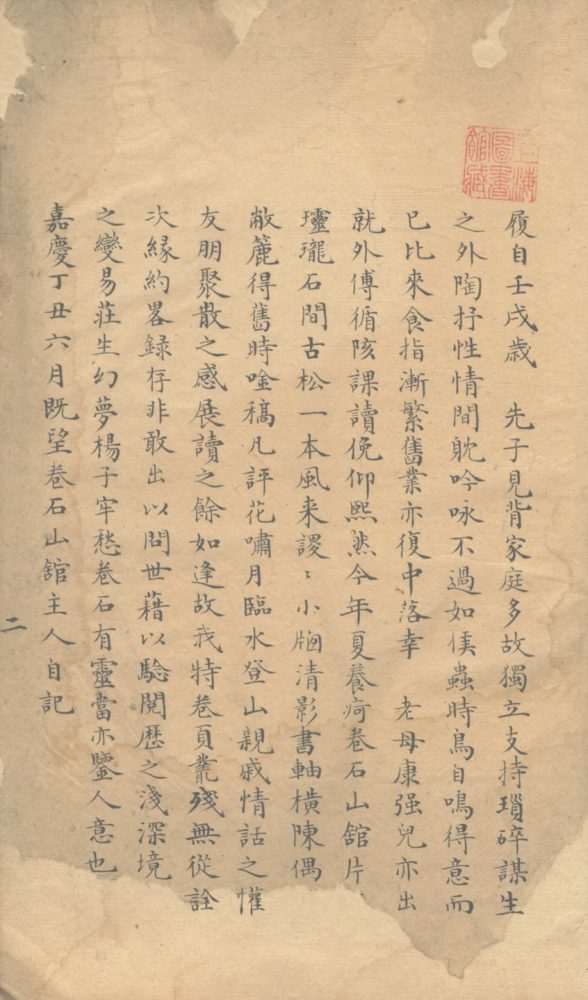 履自壬戌歳　先子見背家庭多故獨立支持瑣碎謀生
之外陶抒性情間躭吟咏不過如候蟲時鳥自鳴得意而
已比來食指漸繁舊業亦復中落幸　老母康强兒亦出
就外傅循陔課讀俛仰熙然今年夏養疴卷石山舘片
瓏石間古松一本風来謖〻小牕清影書軸橫陳偶
敝簏得舊時唫稿凡評花嘯月臨水登山親戚情話之懽
友朋聚散之感展讀之餘如逢故我特卷頁叢殘無從詮
次緣約畧録存非敢出以問世藉以驗閱歷之淺深境
之變易莊生幻夢楊子牢愁卷石有靈當亦鑒人意也
嘉慶丁丑六月既望卷石山舘主人自記
二
圖書
館藏